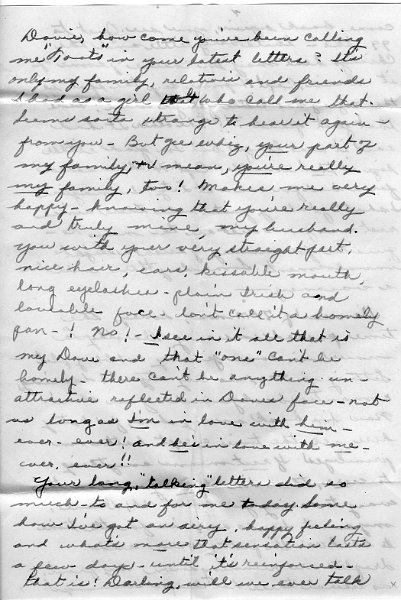 Davie, how come you've been calling
me "Toots" in your latest letters? It's
only my family, relatives and friends
I had as a girl who call me that.
Seems sorta strange to hear it again -
from you - But gee whiz, your part of
my family, I mean, you're really
my family, too! Makes me very
happy - knowing that you're really
and truly mine, my husband.
You with your very straight part,
nice hair, ears, kissable mouth,
long eyelashes - plain Irish and
lovable face. Don't call it a homely
pan - ! No! - I see in it all that is
my Dave and that "one" can't be
homely - there can't be anything un-
attractive reflected in Daves face - not
as long as I'm in love with him -
ever - ever! and he's in love with me -
ever, ever!!
Your long, "talking" letters did so
much - to and for me today. Some
how I've got an airy, happy feeling
and what's more that sensation lasts
a few days - until it's reinforced -
that is! Darling, will we ever talk